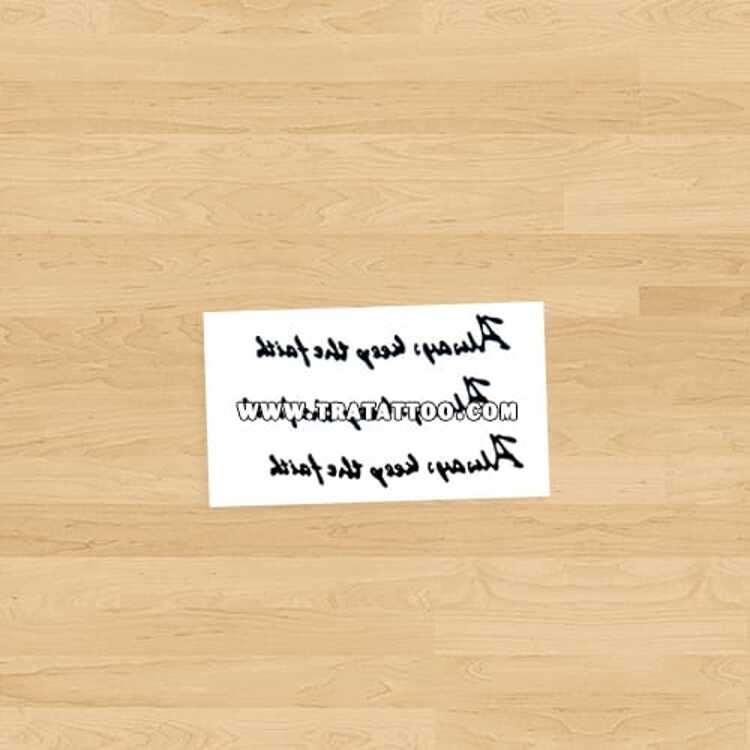 Always keep the faith
Always keep the faith
WWW.TRATATTOO.COM
Always keep the faith